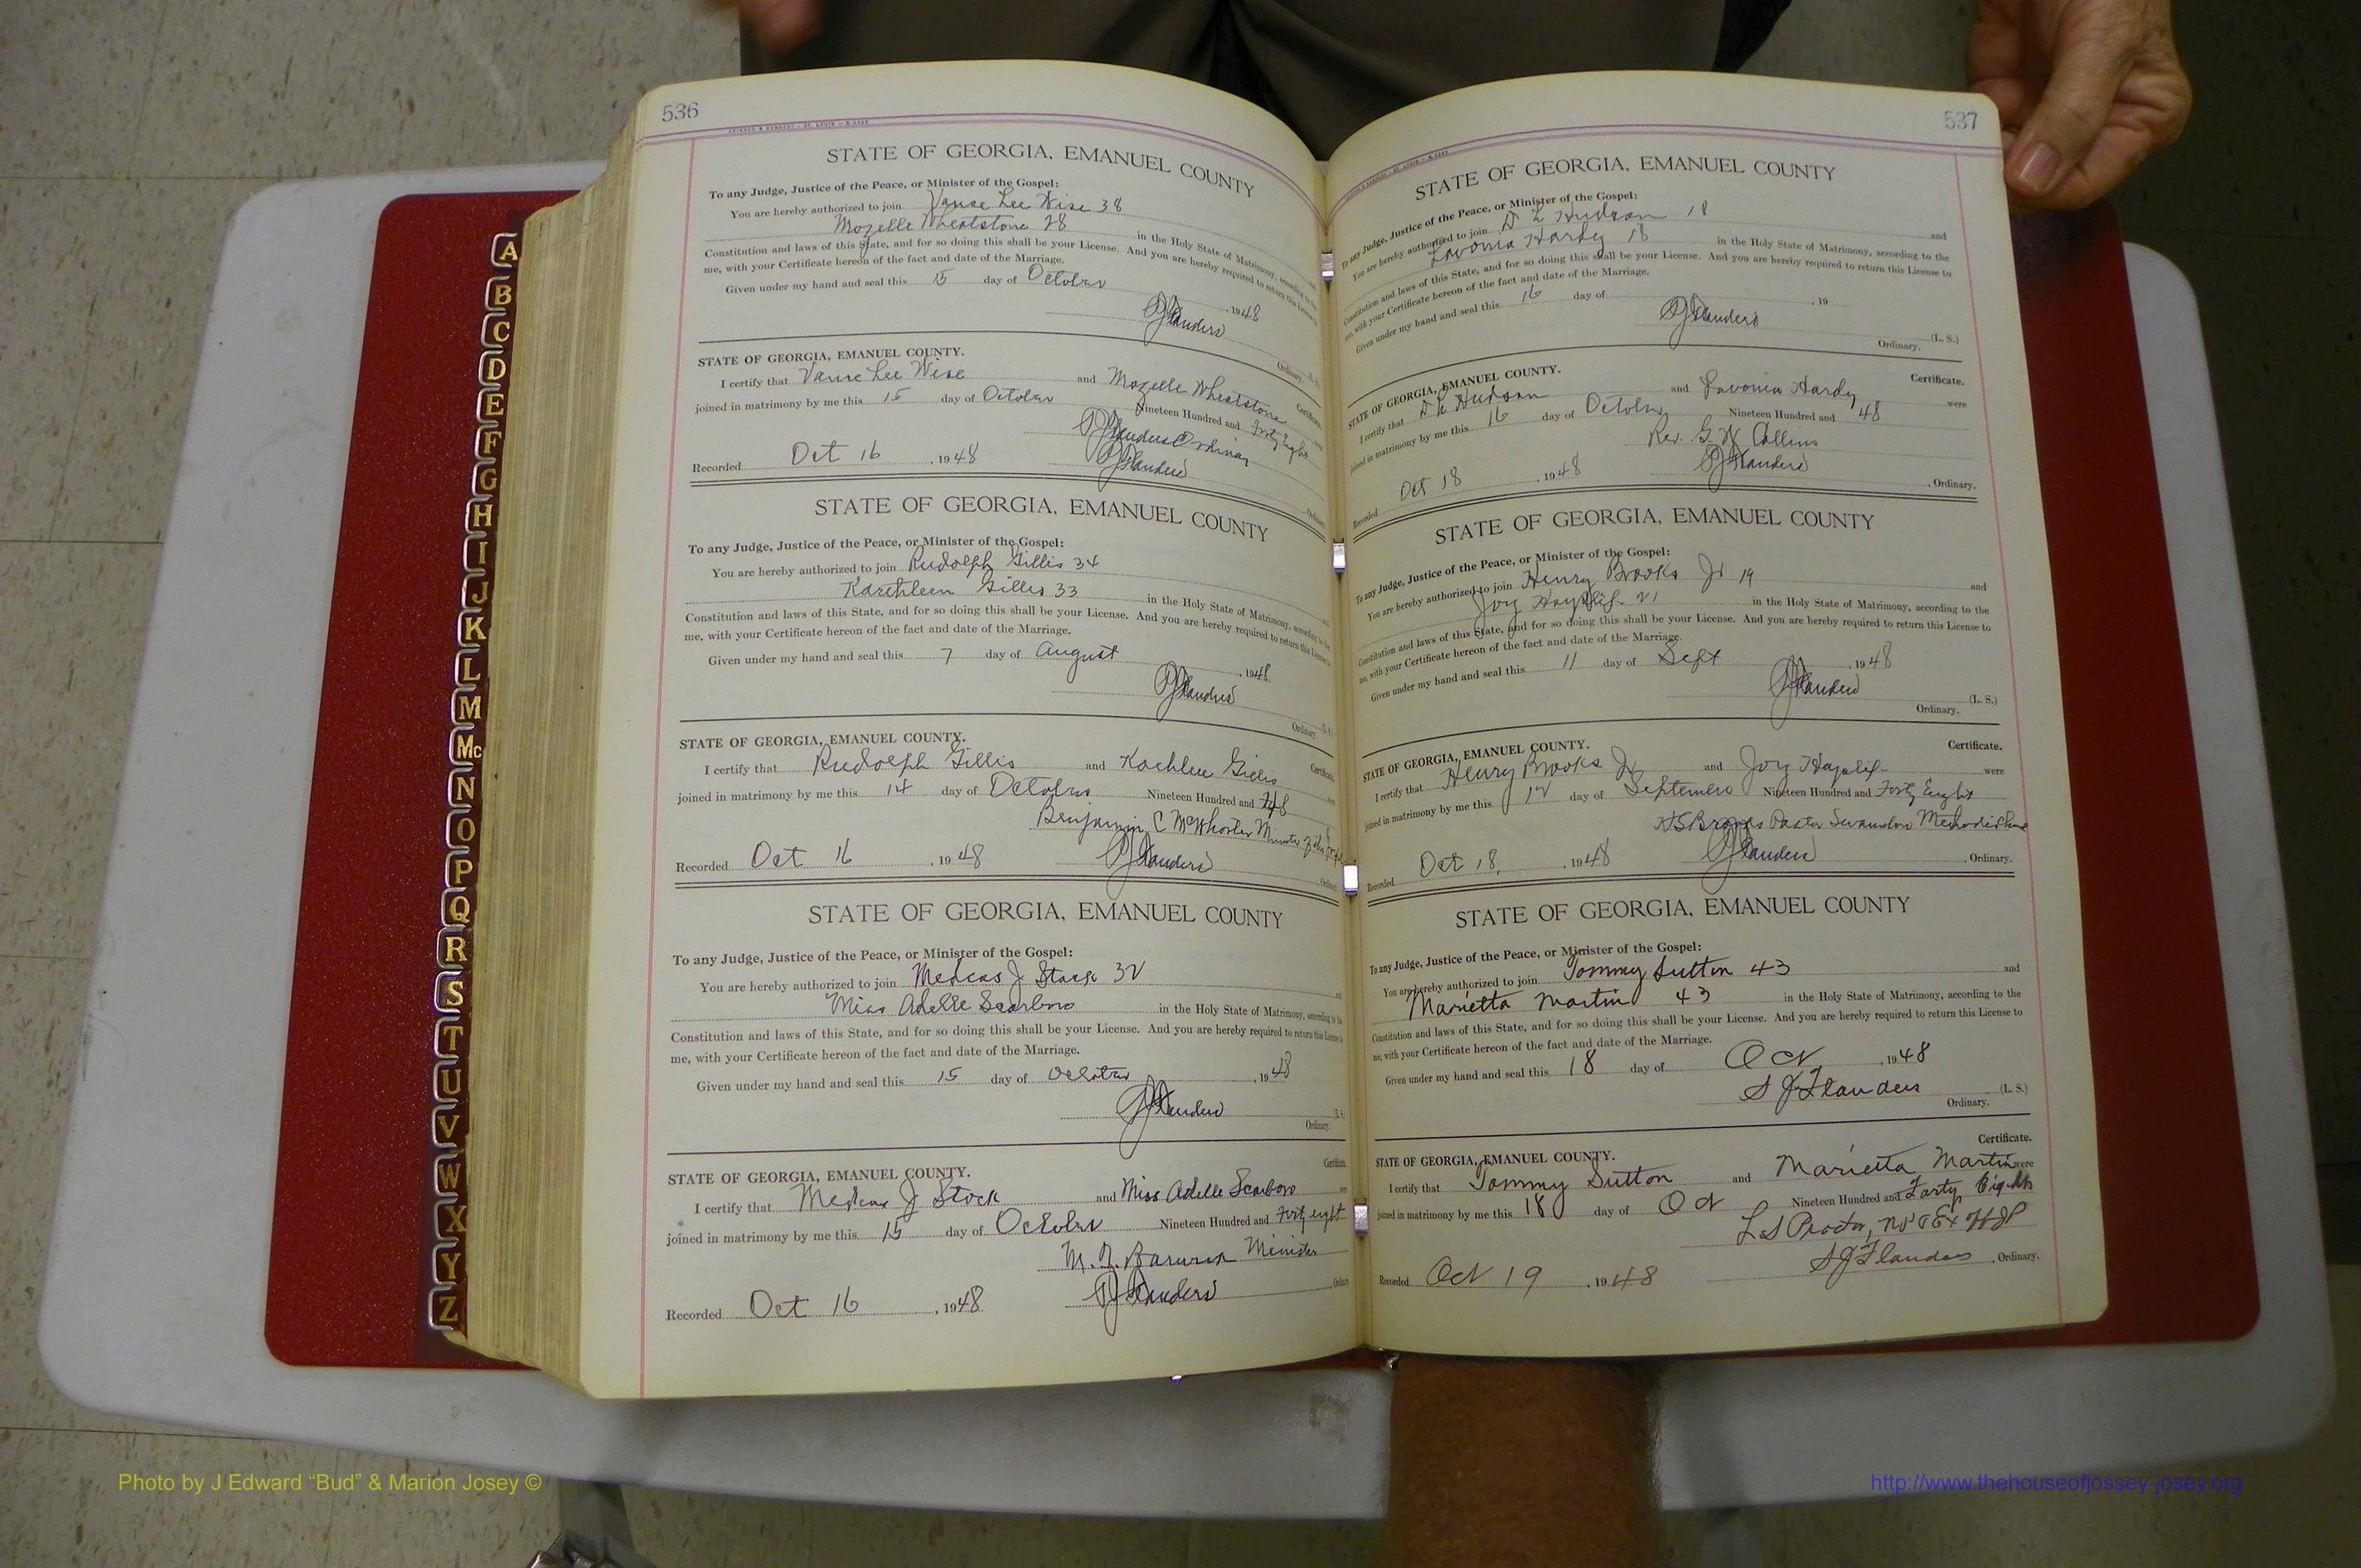 536
STATE OF GEORGIA, EMANUEL COUNTY
To any Judge, Justice of the Peace, or Minister of the Gospel:
You are hereby authorized to join Vanse Lee Wise 38
Mozelle Wheatstone 28 in the Holy State of Matrimony, according to the
Constitution and laws of this State, and for so doing this shall be your License. And you are hereby required to return this License
me, with your Certificate hereon of the fact and date of the Marriage.
Given under my hand and seal this 15 day of October, 1948
Flanders
Ordinary.
STATE OF GEORGIA, EMANUEL COUNTY. Certificate.
I certify that Vanse Lee Wise and Mozelle Wheatstone
joined in matrimony by me this 15 day of October Nineteen Hundred and Forty Eight
Flanders Ordinary
Recorded Oct 16, 1948 Flanders
STATE OF GEORGIA, EMANUEL COUNTY
To any Judge, Justice of the Peace, or Minister of the Gospel:
You are hereby authorized to join Rudolph Gillis 34
Karthleen Gillis 33 in the Holy State of Matrimony, according to the
Constitution and laws of this State, and for so doing this shall be your License. And you are hereby required to return this License
me, with your Certificate hereon of the fact and date of the Marriage.
Given under my hand and seal this 7 day of August, 1948
Flanders
Ordinary.
STATE OF GEORGIA, EMANUEL COUNTY.
I certify that Rudolph Gillis and Kathleen Gillis
joined in matrimony by me this 14 day of October Nineteen Hundred and 48
Benjamin C McWhorter Minister of the
Recorded Oct 16, 1948 Flanders
STATE OF GEORGIA, EMANUEL COUNTY
To any Judge, Justice of the Peace, or Minister of the Gospel:
You are hereby authorized to join Medcas J Stack 32
Miss Adelle Scarboro in the Holy State of Matrimony, according to the
Constitution and laws of this State, and for so doing this shall be your License. And you are hereby required to return this License
me, with your Certificate hereon of the fact and date of the Marriage.
Given under my hand and seal this 15 day of October, 1948
Flanders
Ordinary.
Certificate.
STATE OF GEORGIA, EMANUEL COUNTY.
I certify that J Stock and Miss Adelle Scarboro
joined in matrimony by me this 15 day of October Nineteen Hundred and Forty eight
Minister
Recorded Oct 16, 1948 Flanders
537
STATE OF GEORGIA, EMANUEL COUNTY
To any Judge, Justice of the Peace, or Minister of the Gospel:
You are hereby authorized to join D L Hudson 18 and
Lavonia Hardy 18 in the Holy State of Matrimony, according to the
Constitution and laws of this State, and for so doing this shall be your License. And you are hereby required to return this License to
me, with your Certificate hereon of the fact and date of the Marriage.
Given under my hand and seal this 16 day of , 19
Flanders (L. S.)
Ordinary.
STATE OF GEORGIA, EMANUEL COUNTY. Certificate.
I certify that D L Hudson and Lavonia Hardy were
joined in matrimony by me this 16 day of October Nineteen Hundred and 48
Rev. G. W. Collins
Recorded Oct 18, 1948 Flanders, Ordinary.
STATE OF GEORGIA, EMANUEL COUNTY
To any Judge, Justice of the Peace, or Minister of the Gospel:
You are hereby authorized to join Henry Brooks Jr 19 and
Joy 21 in the Holy State of Matrimony, according to the
Constitution and laws of this State, and for so doing this shall be your License. And you are hereby required to return this License to
me, with your Certificate hereon of the fact and date of the Marriage.
Given under my hand and seal this 11 day of Sept, 1948
Flanders (L. S.)
Ordinary.
STATE OF GEORGIA, EMANUEL COUNTY. Certificate.
I certify that Henry Brooks Jr and Joy were
joined in matrimony by me this 12 day of September Nineteen Hundred and Forty Eight
Pastor Methodist
Recorded Oct 18, 1948 Flanders, Ordinary.
STATE OF GEORGIA, EMANUEL COUNTY
To any Judge, Justice of the Peace, or Minister of the Gospel:
You are hereby authorized to join Tommy Sutton 43 and
Marietta Martin 43 in the Holy State of Matrimony, according to the
Constitution and laws of this State, and for so doing this shall be your License. And you are hereby required to return this License to
me, with your Certificate hereon of the fact and date of the Marriage.
Given under my hand and seal this 18 day of Oct, 1948
S J Flanders (L. S.)
Ordinary.
Certificate.
STATE OF GEORGIA, EMANUEL COUNTY.
I certify that Tommy Sutton and Marietta Martin were
joined in matrimony by me this 18 day of Oct Nineteen Hundred and Forty Eight
L S Proctor, NP & Ex Off JP
Recorded Oct 19, 1948 S J Flanders, Ordinary.
A
B
C
D
E
F
G
H
I
J
K
L
M
Mc
N
O
P
Q
R
S
T
U
V
W
X
Y
Z
Photo by J Edward “Bud” & Marion Josey ©
http://www.thehouseofjossey-josey.org